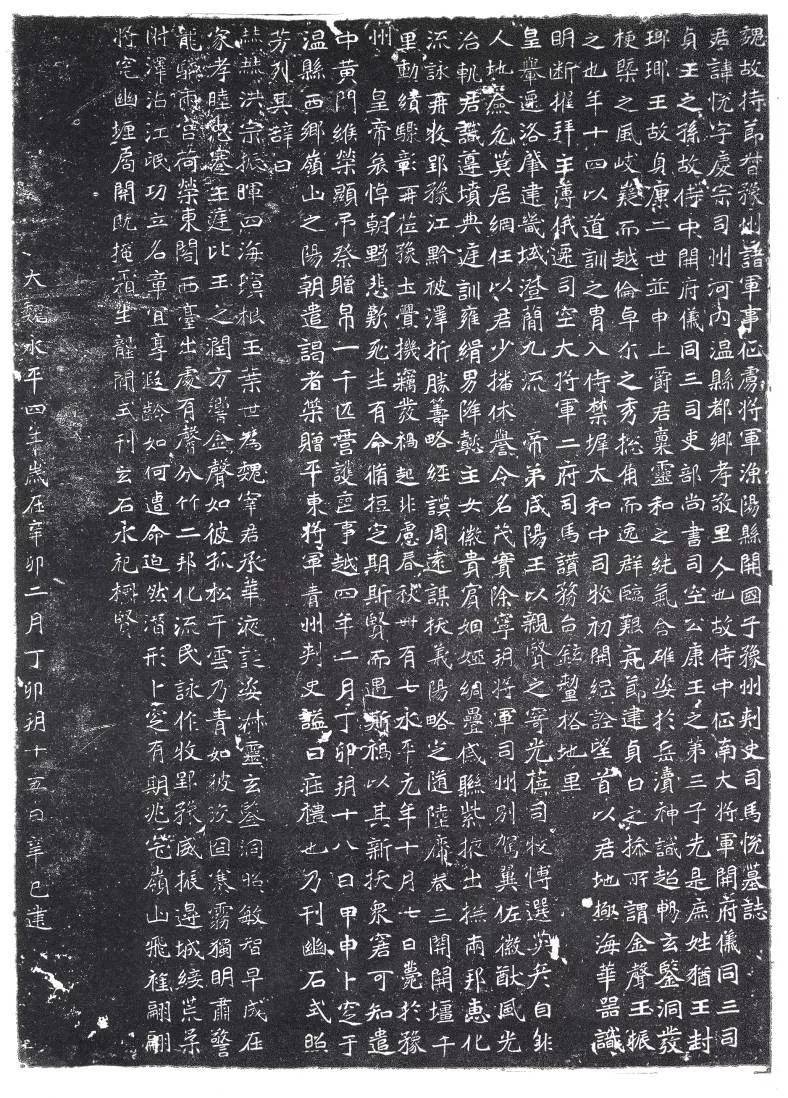 魏故持節督豫州諸軍事征虜將軍漁陽縣開國子豫州刾史司馬悅墓誌
君諱悅字慶宗司州河內溫縣都鄉孝敬里人也故侍中征南大將軍開府儀同三司
貞王之孫故侍中開府儀同三司吏部尚書司空公康王之第三子先是庶姓猶王封
琅瑘王故貞康二世並申上爵君稟靈和之純氣含確姿於岳瀆神識超暢玄鑒洞發
梗槩之風岐嶷而越倫卓尒之秀揔角而逸群臨艱亮節建貞白之操所謂金聲玉振
之也年十四以道訓之胄入侍禁墀太和中司牧初開綱詮望首以君地極海華器識
明断擢拜主薄俄遷司空大將軍二府司馬讚務台鉉聲格地里
皇轝遷洛肇建畿域澄簡九流　帝弟咸陽王以親賢之寄光莅司牧慱選英彥自非
人地僉允莫居綱任以君少播休譽令名茂實除寧朔將軍司州別駕翼佐徽猷風光
治軌君識遵墳典庭訓雍緝男降懿主女徽貴賓姻婭綢疊戚聯紫掖出撫兩邦惠化
流詠再牧郢豫江黔被澤折勝籌略經謨周遠謀扶義陽略定隨陸廓巷三開開壃千
里勳績驟彰再莅豫土舋機竊發禍起非慮春秋卌有七永平元年十月七日薨於豫
州　皇帝哀悼朝野悲歎死生有命脩短定期斯賢而遇斯禍以其新扶衆窘可知遣
中黃門維榮顯弔祭贈帛一千匹營護喪事越四年二月丁卯朔十八日甲申卜窆于
溫縣西鄉嶺山之陽朝遣謁者策贈平東將軍青州刾史謚曰莊禮也乃刊幽石式照
芳列其辞曰
赫赫洪宗振暉四海瓊根玉葉世為魏宰君承華液誕姿淋靈玄鑒洞照敏智早成在
家孝睦忠蹇王庭比王之潤方響金聲如彼孤松干雲乃青如彼汶固褰霧獨明肅警
龍驤雨宮荷榮東閤西臺出處有聲分竹二邦化流民詠作牧郢豫威振邊城綏荒柔
附澤沾江氓功立名章宜享遐齡如何遣命迫然潛形卜窆有期兆宅嶺山飛旌翩翩
將宅幽埏扃開既掩霜生龍開式刊玄石永祀標賢
大魏永平四年歲在辛卯二月丁卯朔十五日辛巳建